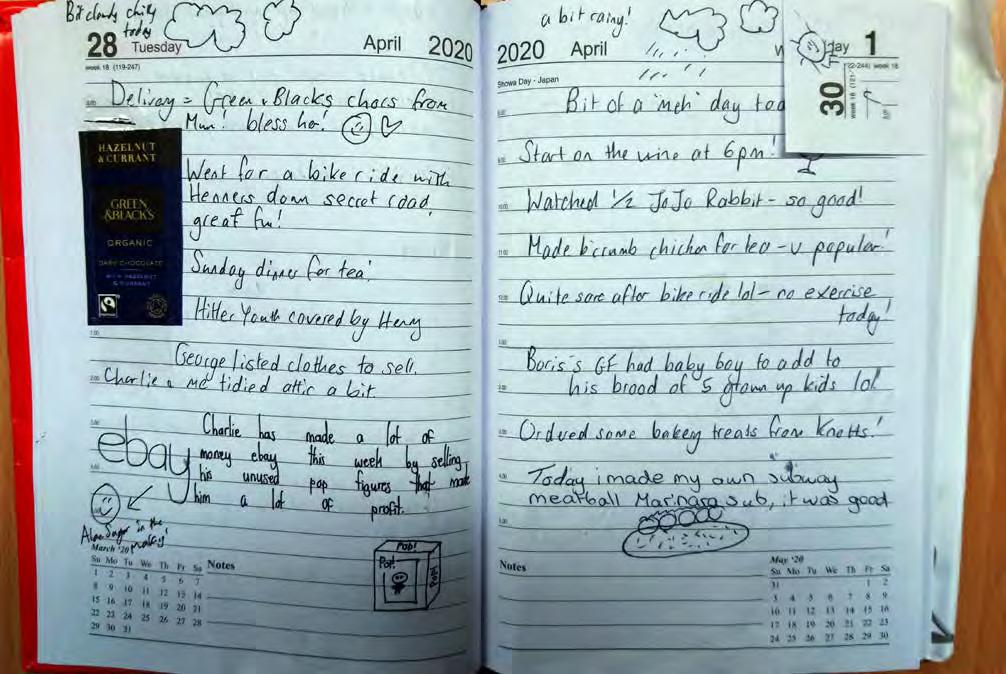 Bit cloudy chilly
today
28 Tuesday April 2020
week 18 (119-247)
8.00 Delivery = Green & Blacks chocs from
Mum! bless her!
HAZELNUT
& CURRANT
GREEN
&BLACK'S
ORGANIC
DARK CHOCOLATE
WITH HAZELNUT
& CURRANT
Went for a bike ride with
Henners down secret road,
great fun!
Sunday dinner for tea!
Hitler Youth covered by Henry
1.00
George listed clothes to sell.
2.00 Charlie & me tidied attic a bit.
3.00
ebay
Charlie has made a lot of
money ebay this week by selling
his unused pop figures that made
him a lot of profit.
4.00
Alan Sugar in the
making!
Pop!
Pop!
Pop!
March '20
Su Mo Tu We Th Fr Sa
1 2 3 4 5 6 7
8 9 10 11 12 13 14
15 16 17 18 19 20 21
22 23 24 25 26 27 28
29 30 31
Notes
a bit rainy!
2020 April
day 1
week 18
30
week 18
Showa Day - Japan
8.00 Bit of a 'meh' day
9.00 Start on the wine at 6pm!
10.00 Watched 1/2 JoJo Rabbit - so good!
11.00 Made b'crumb chicken for tea - v popular!
12.00 Quite sore after bike ride lol - no exercise
today!
1.00
Boris's GF had baby boy to add to
2.00 his brood of 5 grown up kids lol
3.00 Ordered some bakey treats from Knotts!
4.00 Today i made my own subway
meatball Marinara sub, it was good
5.00
Notes
May '20
Su Mo Tu We Th Fr Sa
31 1 2
3 4 5 6 7 8 9
10 11 12 13 14 15 16
17 18 19 20 21 22 23
24 25 26 27 28 29 30